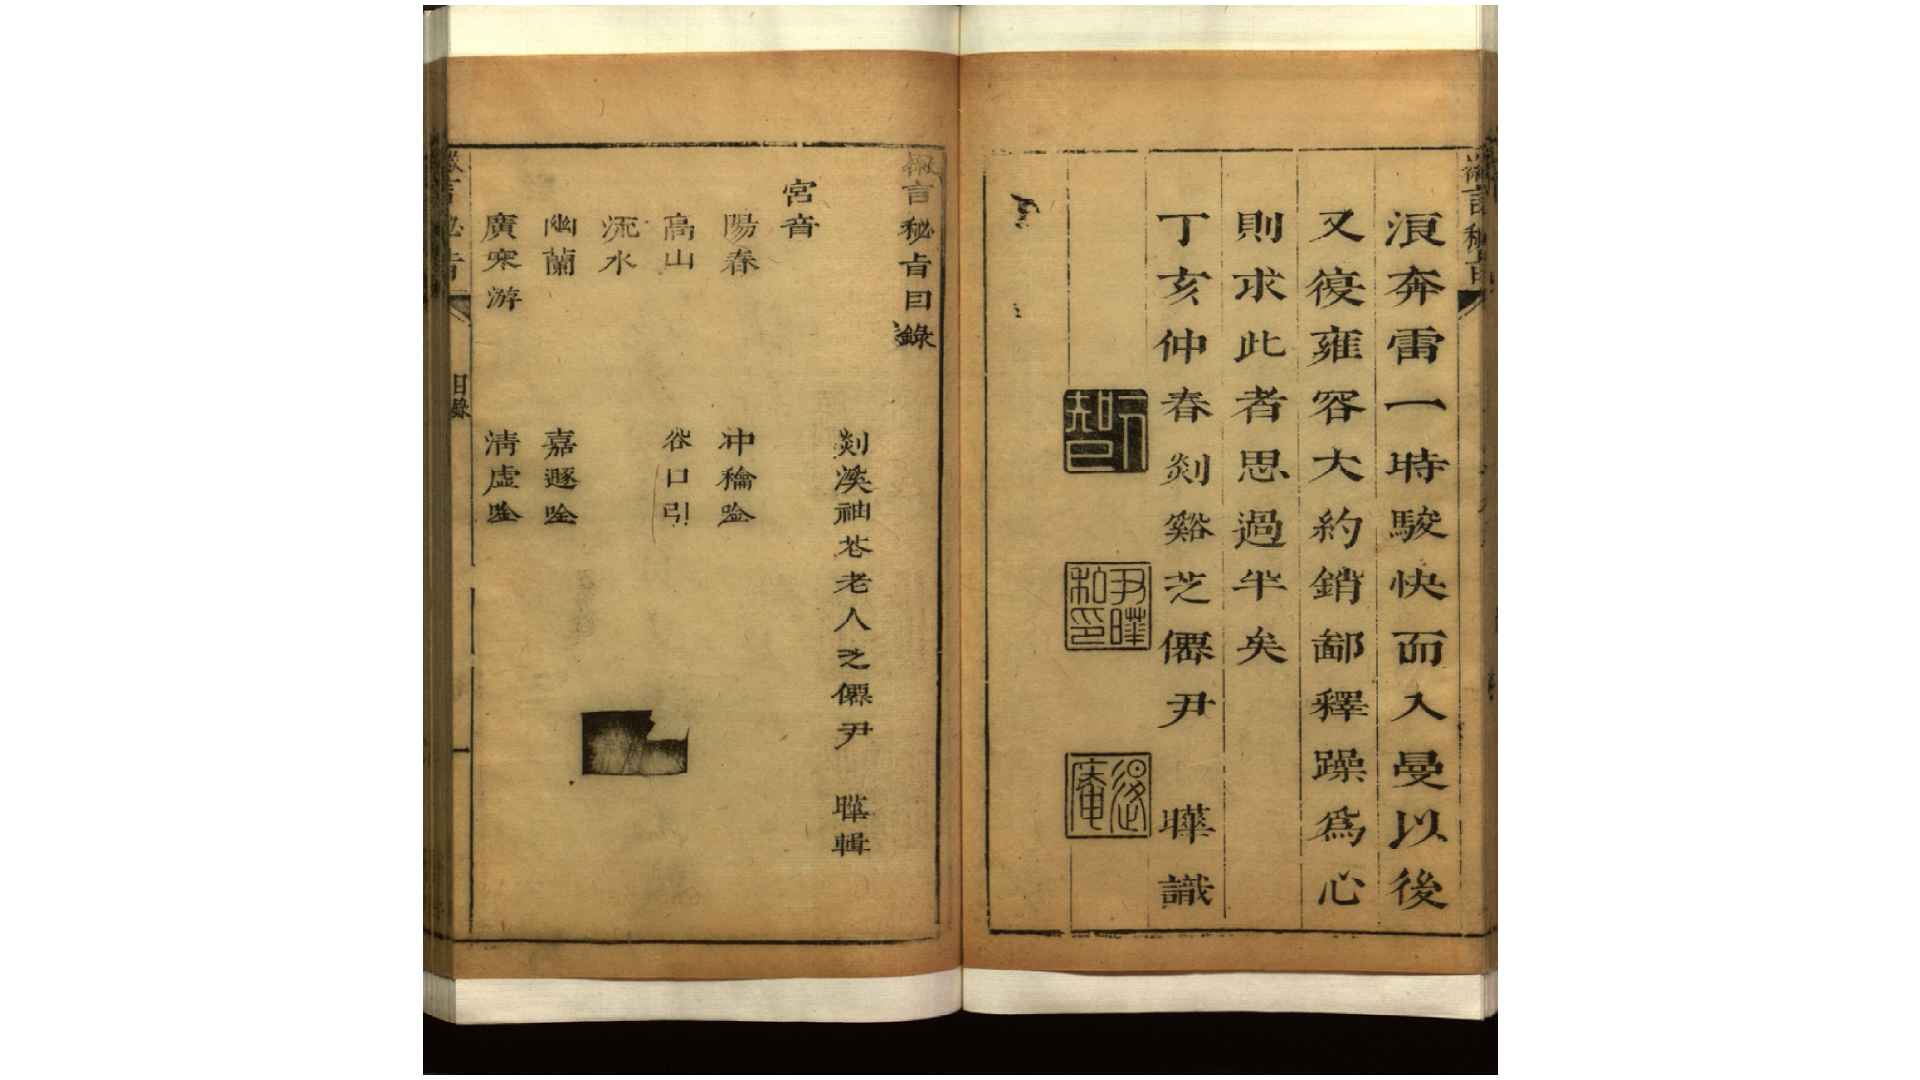 徽言秘旨
湏奔雷一時駿快而入曼以後
又復雍容大約銷鄙釋躁爲心
則求此者思過半矣
丁亥仲春剡谿芝僊尹 曄識
仁智
徽言秘旨目錄
剡溪袖芲老人芝僊尹 曄輯
宮音
陽春 冲稐唫
高山 谷口引
流水
幽蘭 嘉遯唫
廣寒游 清虛唫
徽言秘旨 目錄 一